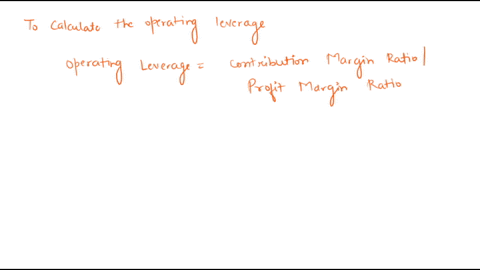 To Calculate the operating leverage
Operating Leverage = Contribution Margin Ratio /
Profit Margin Ratio